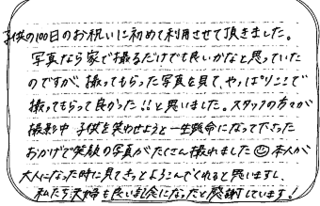 子供の100日のお祝いに初めて利用させて頂きました。
写真なら家で撮るだけでも良いかなと思っていた
のですが、撮ってもらった写真を見て、やっぱりここで
撮ってもらって良かった!!と思いました。スタッフの方々が
撮影中 子供を笑わせようと一生懸命になって下さった
おかげで笑顔の写真がたくさん撮れました☺本人が
大人になった時に見てきっとよろこんでくれると思いますし、
私たち夫婦も良い記念になったと感謝しています!